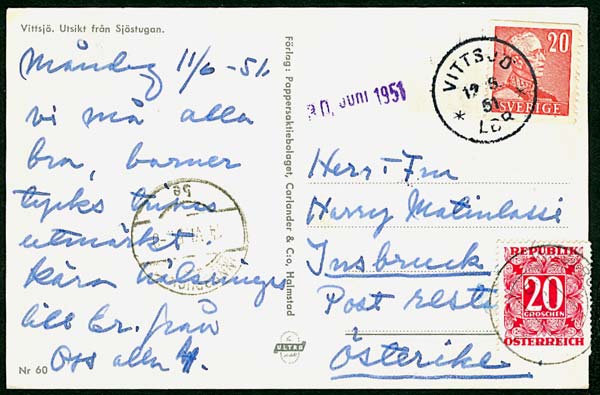 Vittsjö. Utsikt från Sjöstugan.
Måndag 11/6 -51.
vi må alla
bra, barnen
tycks trivas
utmärkt.
Kära hälsningar
till Er från
Oss alla 4.
Nr 60
Förlag: Pappersaktiebolaget, Carlander & C:o, Halmstad
ULTRA
Juni 1951
VITTSJÖ
51
LBR
20
SVERIGE
Herr & Fru
Harry Matinlassi
Insbruck
Post rest
Österike
REPUBLIK
20
GROSCHEN
ÖSTERREICH
5a